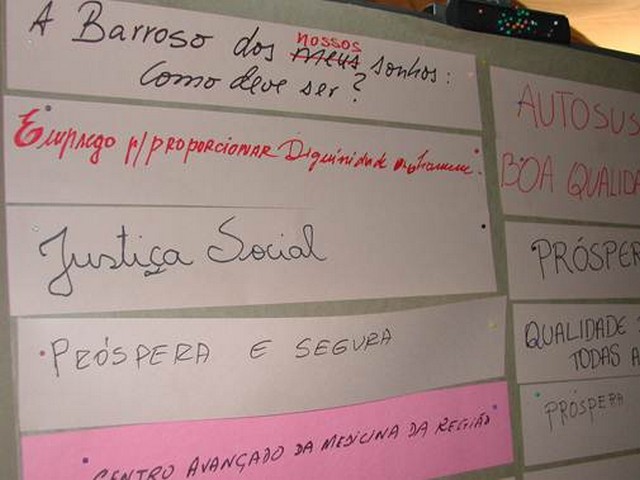 A Barroso dos nossos meus sonhos:
Como deve ser?
Emprego p/ proporcionar Diguinidade ao
Justiça Social
PRÓSPERA E SEGURA
CENTRO AVANÇADO DA MEDICINA DA REGIÃO
AUTOSUS
BOA QUALIDA
PRÓSPER
QUALIDADE
TODAS A
PRÓSPERA